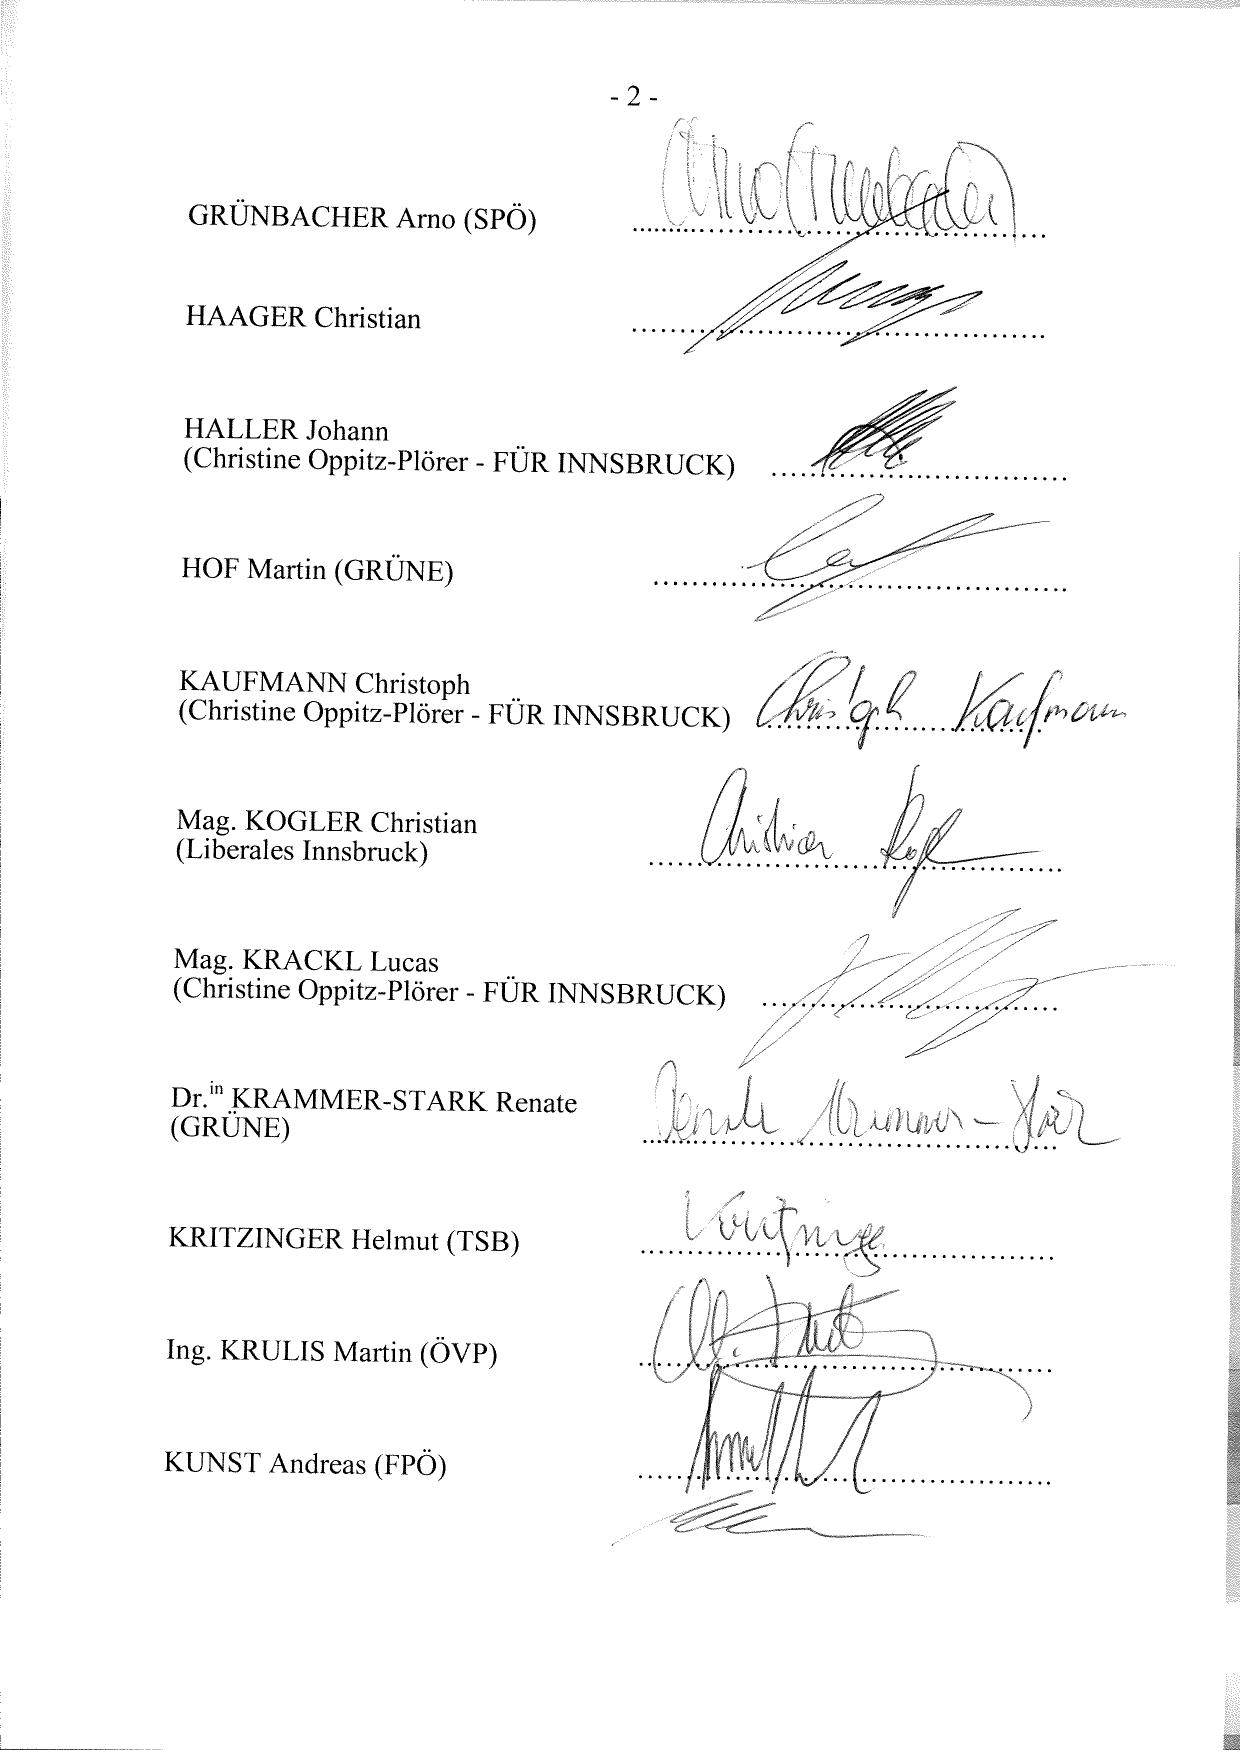 - 2 -
GRÜNBACHER Arno (SPÖ)
Arno Grünbacher
HAAGER Christian
HALLER Johann
(Christine Oppitz-Plörer - FÜR INNSBRUCK)
HOF Martin (GRÜNE)
KAUFMANN Christoph
(Christine Oppitz-Plörer - FÜR INNSBRUCK)
Christoph Kaufmann
Mag. KOGLER Christian
(Liberales Innsbruck)
Christian Kogler
Mag. KRACKL Lucas
(Christine Oppitz-Plörer - FÜR INNSBRUCK)
Dr.in KRAMMER-STARK Renate
(GRÜNE)
Renate Krammer-Stark
KRITZINGER Helmut (TSB)
Kritzinger
Ing. KRULIS Martin (ÖVP)
KUNST Andreas (FPÖ)